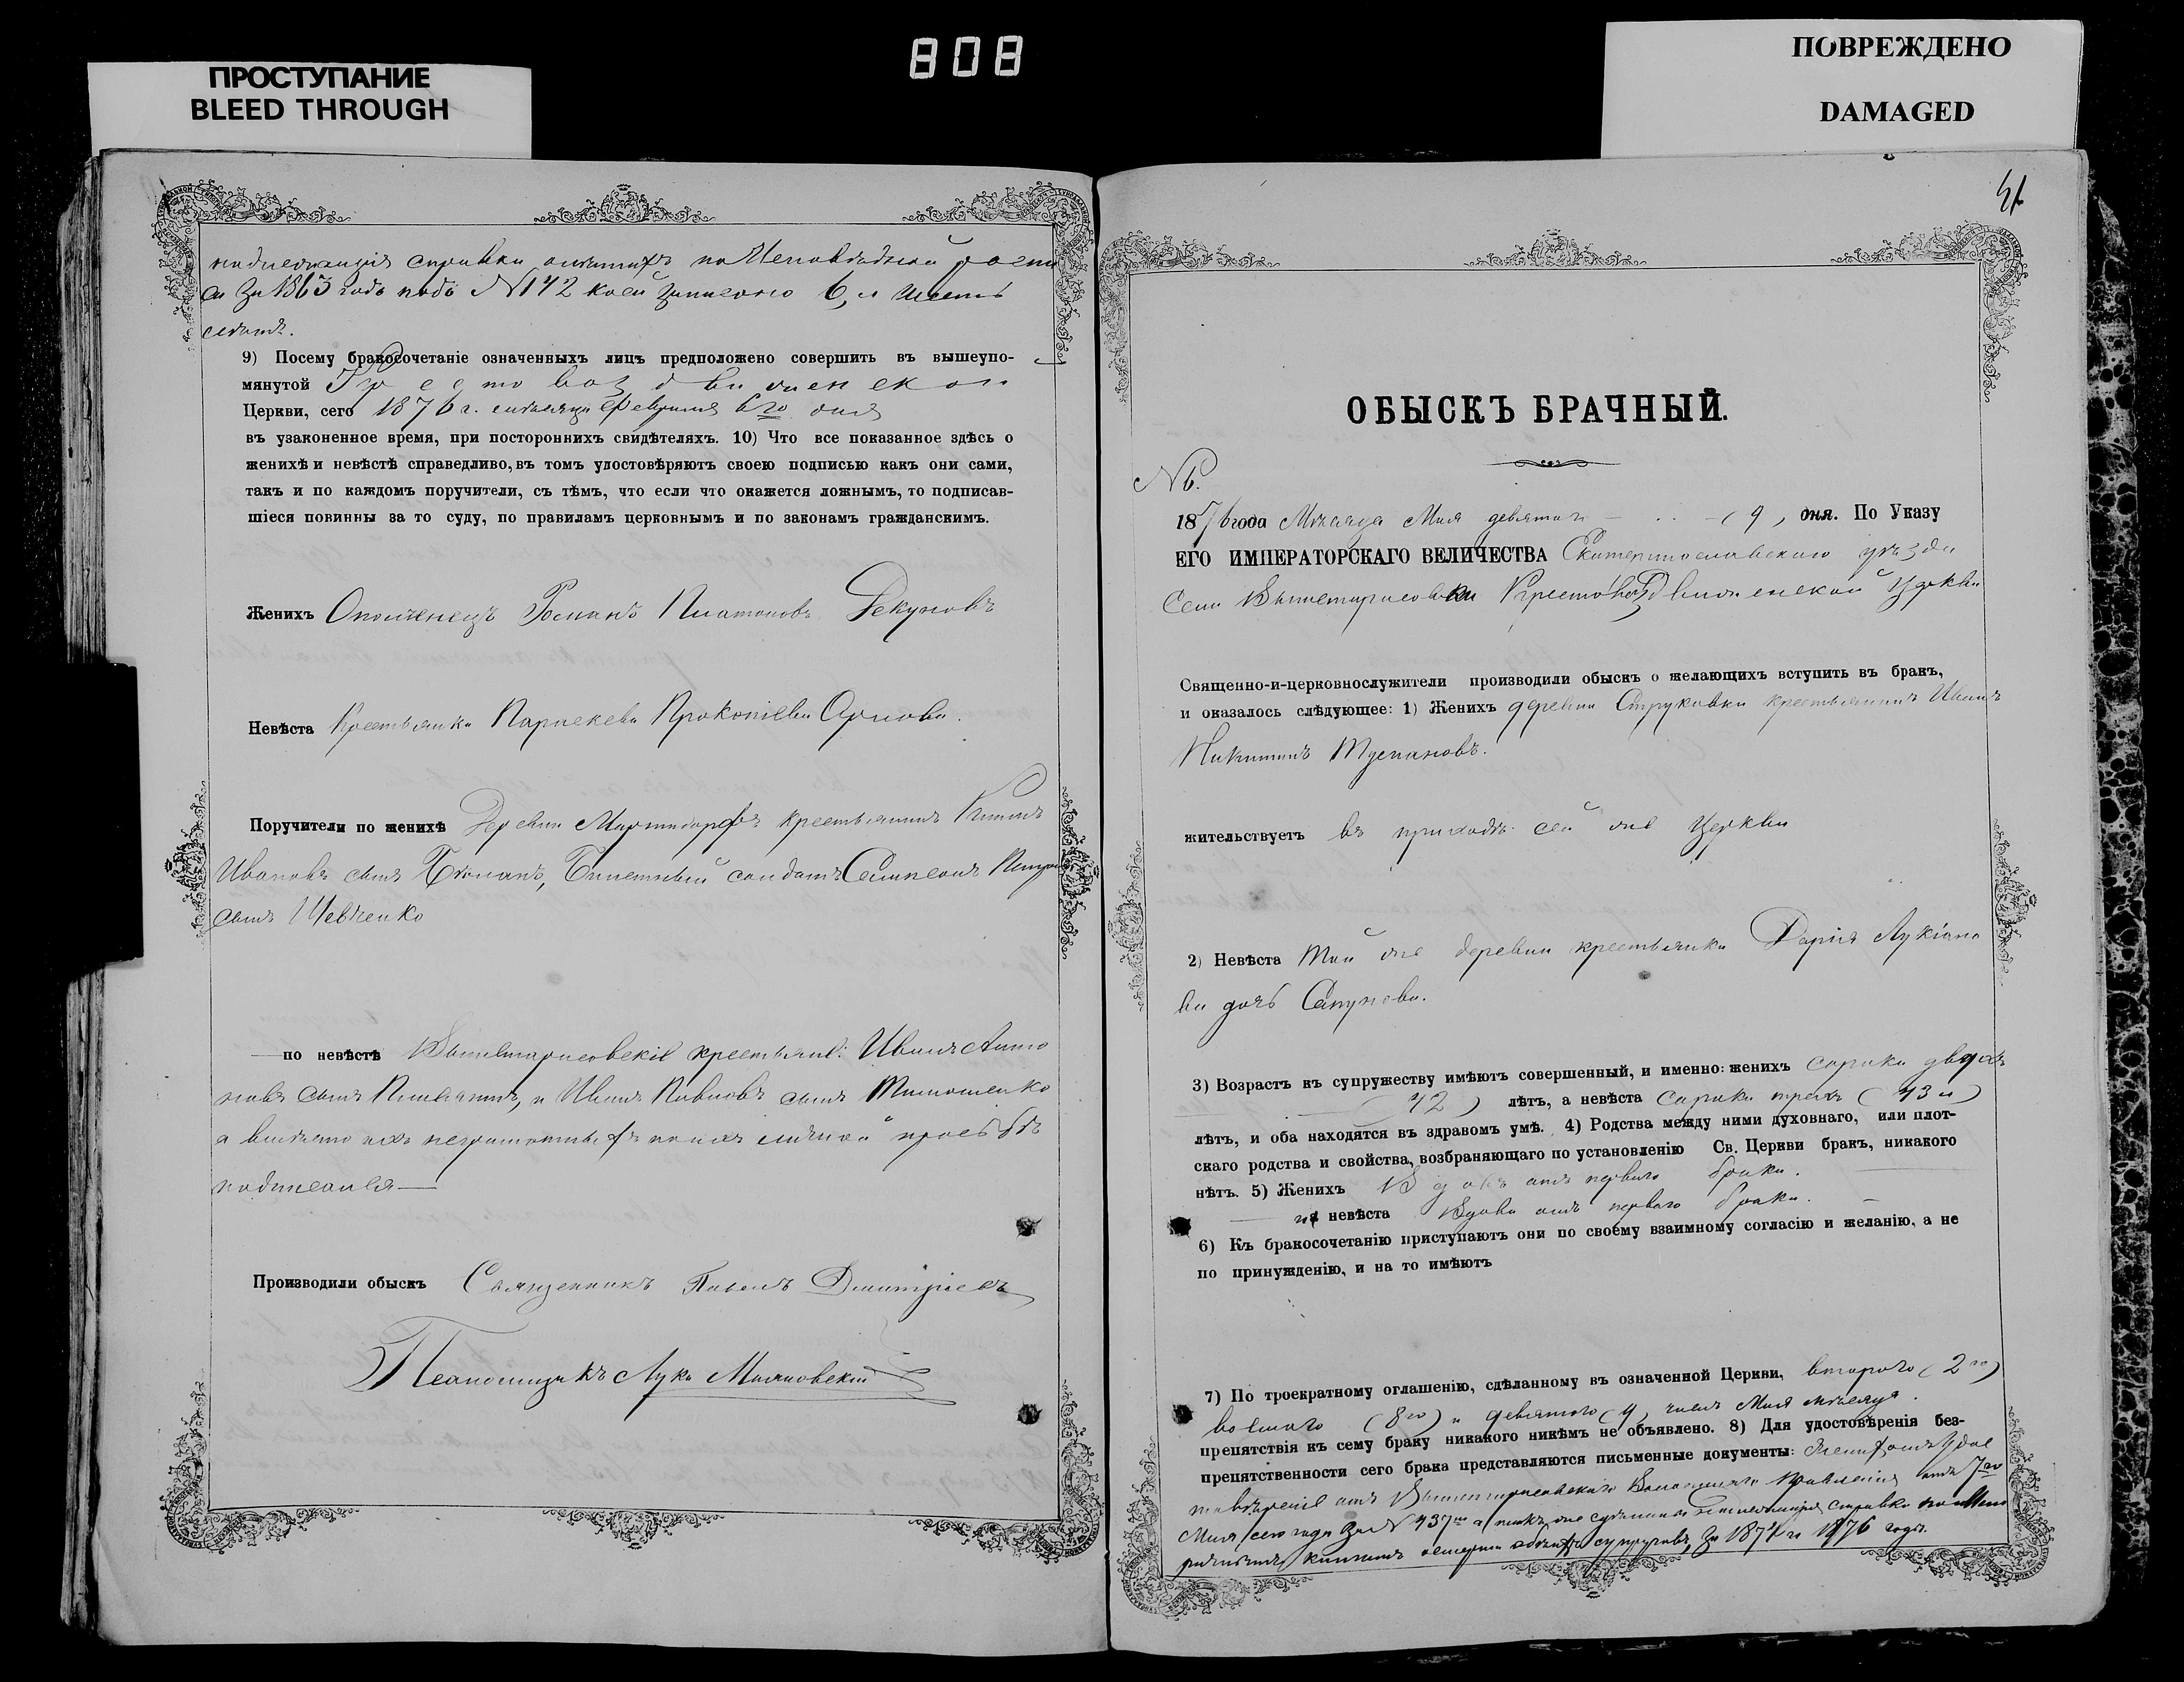 808
ПРОСТУПАНИЕ
BLEED THROUGH
ПОВРЕЖДЕНО
DAMAGED
справки по Исповѣдной роспи
си за 1863 годъ подъ №142 коей записано 6, и шесть
9) Посему бракосочетаніе означенныхъ лицъ предположено совершить въ вышеупо-
мянутой Крестовоздвиженской
Церкви, сего 1876 г. мѣсяца Февраля 6го дня
въ узаконенное время, при постороннихъ свидѣтеляхъ. 10) Что все показанное здѣсь о
женихѣ и невѣстѣ справедливо, въ томъ удостовѣряютъ своею подписью какъ они сами,
такъ и по каждомъ поручители, съ тѣмъ, что если что окажется ложнымъ, то подписав-
шіеся повинны за то суду, по правиламъ церковнымъ и по законамъ гражданскимъ.
Женихъ Ополченецъ Романъ Платоновъ Декуновъ
Невѣста Крестьянка Параскева Прокопіева Орлова.
Поручители по женихѣ Деревни крестьянинъ
Ивановъ сынъ Билетный солдатъ Сампсонъ Петровъ
сынъ Шевченко
по невѣстѣ крестьяне: Иванъ Анто
новъ сынъ и Иванъ Павловъ сынъ Тимошенко
а вмѣсто ихъ неграмотныхъ по ихъ личной просьбѣ
подписался
Производили обыскъ Священникъ Павелъ Дмитріевъ
Псаломщикъ Лука
41
ОБЫСКЪ БРАЧНЫЙ.
№ 6.
1876 года Мѣсяца Мая девятаго (9) дня. По Указу
ЕГО ИМПЕРАТОРСКАГО ВЕЛИЧЕСТВА Екатеринославскаго уѣзда
Села Вышетарасовки Крестовоздвиженской Церкви
Священно-и-церковнослужители производили обыскъ о желающихъ вступить въ бракъ,
и оказалось слѣдующее: 1) Женихъ деревни Струковки крестьянинъ Иванъ
Никитинъ
жительствуетъ въ приходѣ сей же Церкви
2) Невѣста Той же деревни крестьянка Дарія Лукіано
ва дочь Сапунова.
3) Возрастъ къ супружеству имѣютъ совершенный, и именно: женихъ сорока двухъ
(42) лѣтъ, а невѣста сорока трехъ (43 и)
лѣтъ, и оба находятся въ здравомъ умѣ. 4) Родства между ними духовнаго, или плот-
скаго родства и свойства, возбраняющаго по установленію Св. Церкви бракъ, никакого
нѣтъ. 5) Женихъ Вдовъ отъ перваго брака.
невѣста вдова отъ перваго брака.
6) Къ бракосочетанію приступаютъ они по своему взаимному согласію и желанію, а не
по принужденію, и на то имѣютъ
7) По троекратному оглашенію, сдѣланному въ означенной Церкви, второго (2го)
восмаго (8го) и девятаго (9) числъ Мая мѣсяца.
препятствія къ сему браку никакого никѣмъ не объявлено. 8) Для удостовѣренія без-
препятственности сего брака представляются письменные документы: Удос
товѣреніе отъ Вышетарасовскаго Волостнаго Правленія отъ 7го
Мая сего года за № 437 справка по Мет
рическимъ книгамъ о смерти супруговъ за 1874 и 1876 годы.